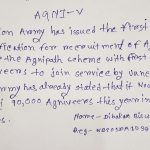 AGNI-V
ion Army has issued the first
ification for recruitment of A
the Agnipath scheme with first
veers to join service by June
rmy has already stated that it wou
90,000 Agniveers this year in
s.
Name:- Dibakar Bisw
Reg:-